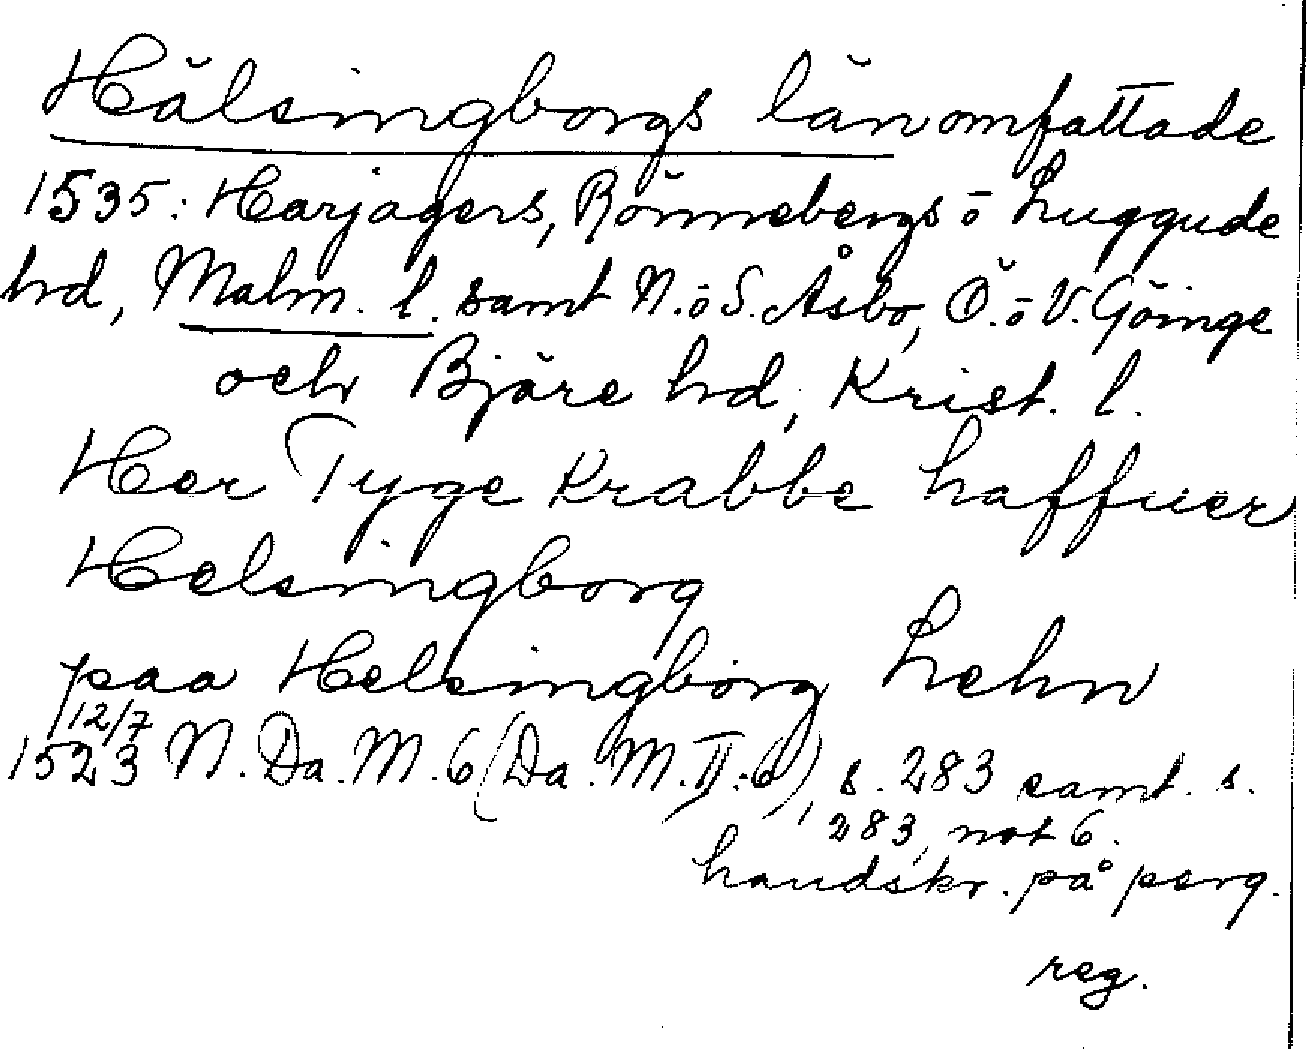 Hälsingborgs län omfattade
1535: Harjagers, Rönnebergs ō Luggude
hd, Malm. l. samt N. ō S. Åsbo, Ö. ō V. Göinge
och Bjäre hd, Krist. l.
Her Tyge Krabbe haffuer
Helsingborg
paa Helsingborg Lehn
12/7
1523 N. Da. M. 6 (Da. M. II. 6), s. 283 samt s.
283, not 6.
handskr. på perg.
reg.